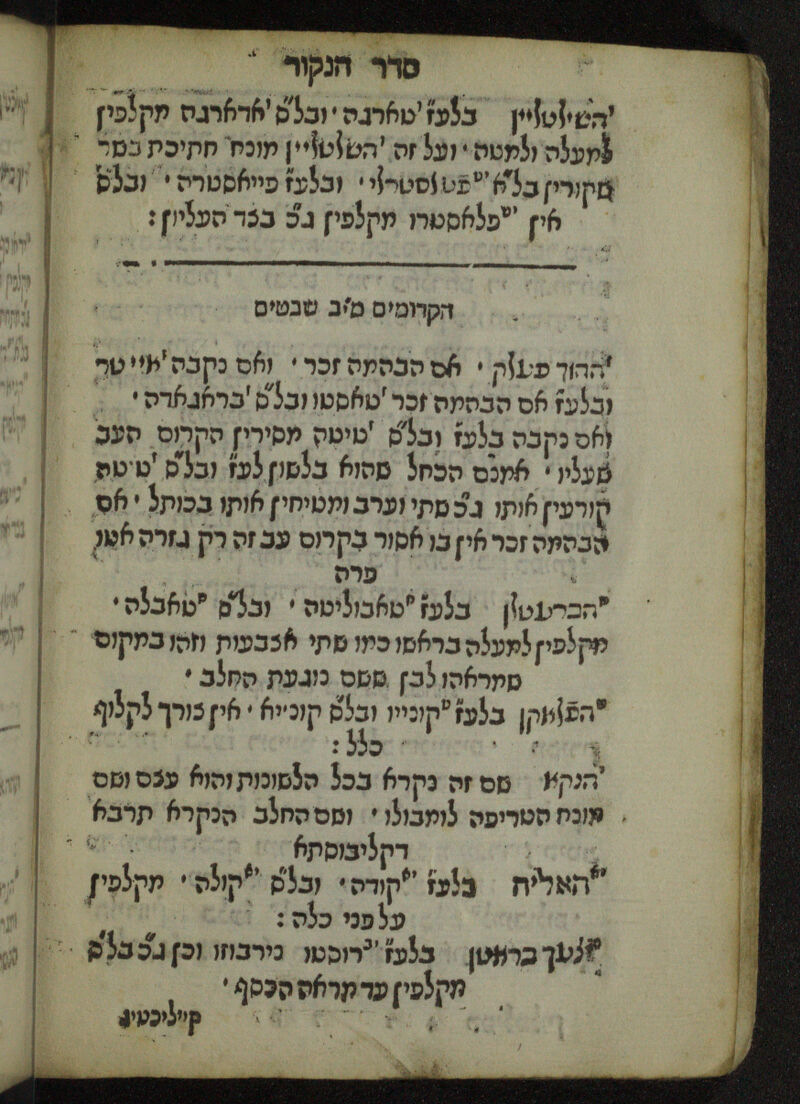 סדר הנקור
בלעז טארגה ובל״ס אדארגה מקלפין
למעלה ולמטה ועל זה מונח חתיכת בשר
ובלעז פייאסטרה ובל״ס
אין פלאסטרו מקלפין ג״כ בצד העליון :
הקרומים מי״ב שבטים
אם הבהמה זכר ואם נקבה
ובלעז אם הבהמה זכר טאסטו ובל״ס בראגאדה
ואם נקבה בלעז ובל״ס טיטה מסירין הקרום העב
שעליו אמנם הכחל שהוא בלשון לעז ובל״ס טיטה
קורעין אותו ג״כ שתי וערב ומטיחין אותו בכותל אם
הבהמה זכר אין בו אסור בקרום עב זה רק גזרה אטו
פרה
בלעז טאבוליטה ובל״ס טאבלה
מקלפין למעלה בראשו כמו שתי אצבעות וזהו במקום
שמראהו לבן ששם נוגעת החלב
בלעז קונייו ובל״ס קונייא אין צורך לקלוף
כלל :
שם זה נקרא בכל הלשונות והוא עצם ושם
מונח הטריפה לומבולו ושם החלב הנקרא תרבא
דקליבוסתא
האליה בלעז קודה ובל״ס קולה מקלפין
על פני כלה :
בלעז רוסטו נירבוזו וכן ג״כ בל״ס
מקלפין עד מראה הכסף